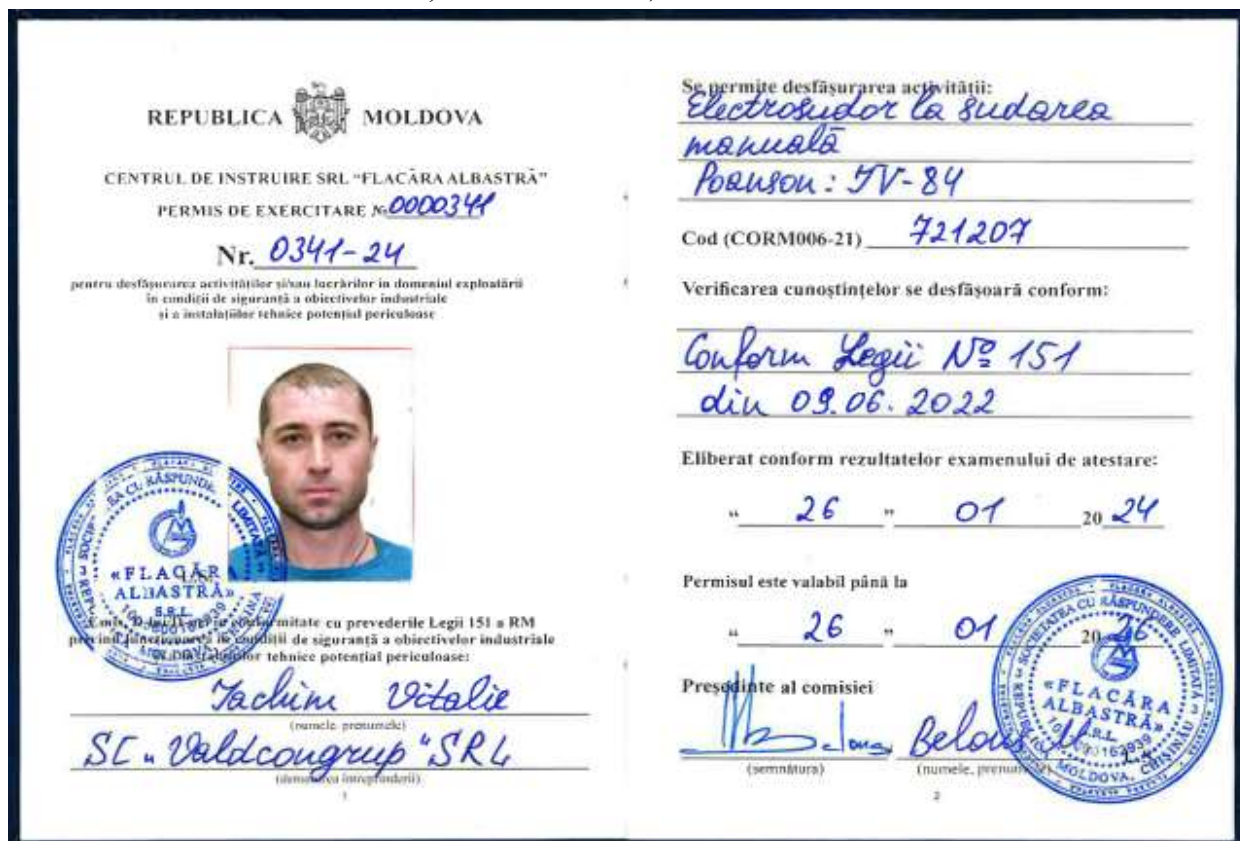 REPUBLICA MOLDOVA
CENTRUL DE INSTRUIRE SRL "FLACĂRA ALBASTRĂ"
PERMIS DE EXERCITARE № 0000341
Nr. 0341-24
pentru desfășurarea activităților și/sau lucrărilor în domeniul exploatării
în condiții de siguranță a obiectivelor industriale
și a instalațiilor tehnice potențial periculoase
«FLACĂRA
ALBASTRĂ»
S.R.L.
în conformitate cu prevederile Legii 151 a RM
privind funcționarea în condiții de siguranță a obiectivelor industriale
tehnice potențial periculoase:
Iachim Vitalie
(numele, prenumele)
SC "Valdcongrup" SRL
(denumirea întreprinderii)
1
Se permite desfășurarea activității:
Electrosudor la sudarea
manuală
Poanson: IV-84
Cod (CORM006-21) 721207
Verificarea cunoștințelor se desfășoară conform:
Conform Legii № 151
din 09.06.2022
Eliberat conform rezultatelor examenului de atestare:
" 26 " 01 20 24
Permisul este valabil până la
" 26 " 01 20 26
Președinte al comisiei
Belous
(semnătura) (numele, prenumele)
2
SOCIETATEA CU RĂSPUNDERE LIMITATĂ
«FLACĂRA
ALBASTRĂ»
S.R.L.
MOLDOVA, CHIȘINĂU